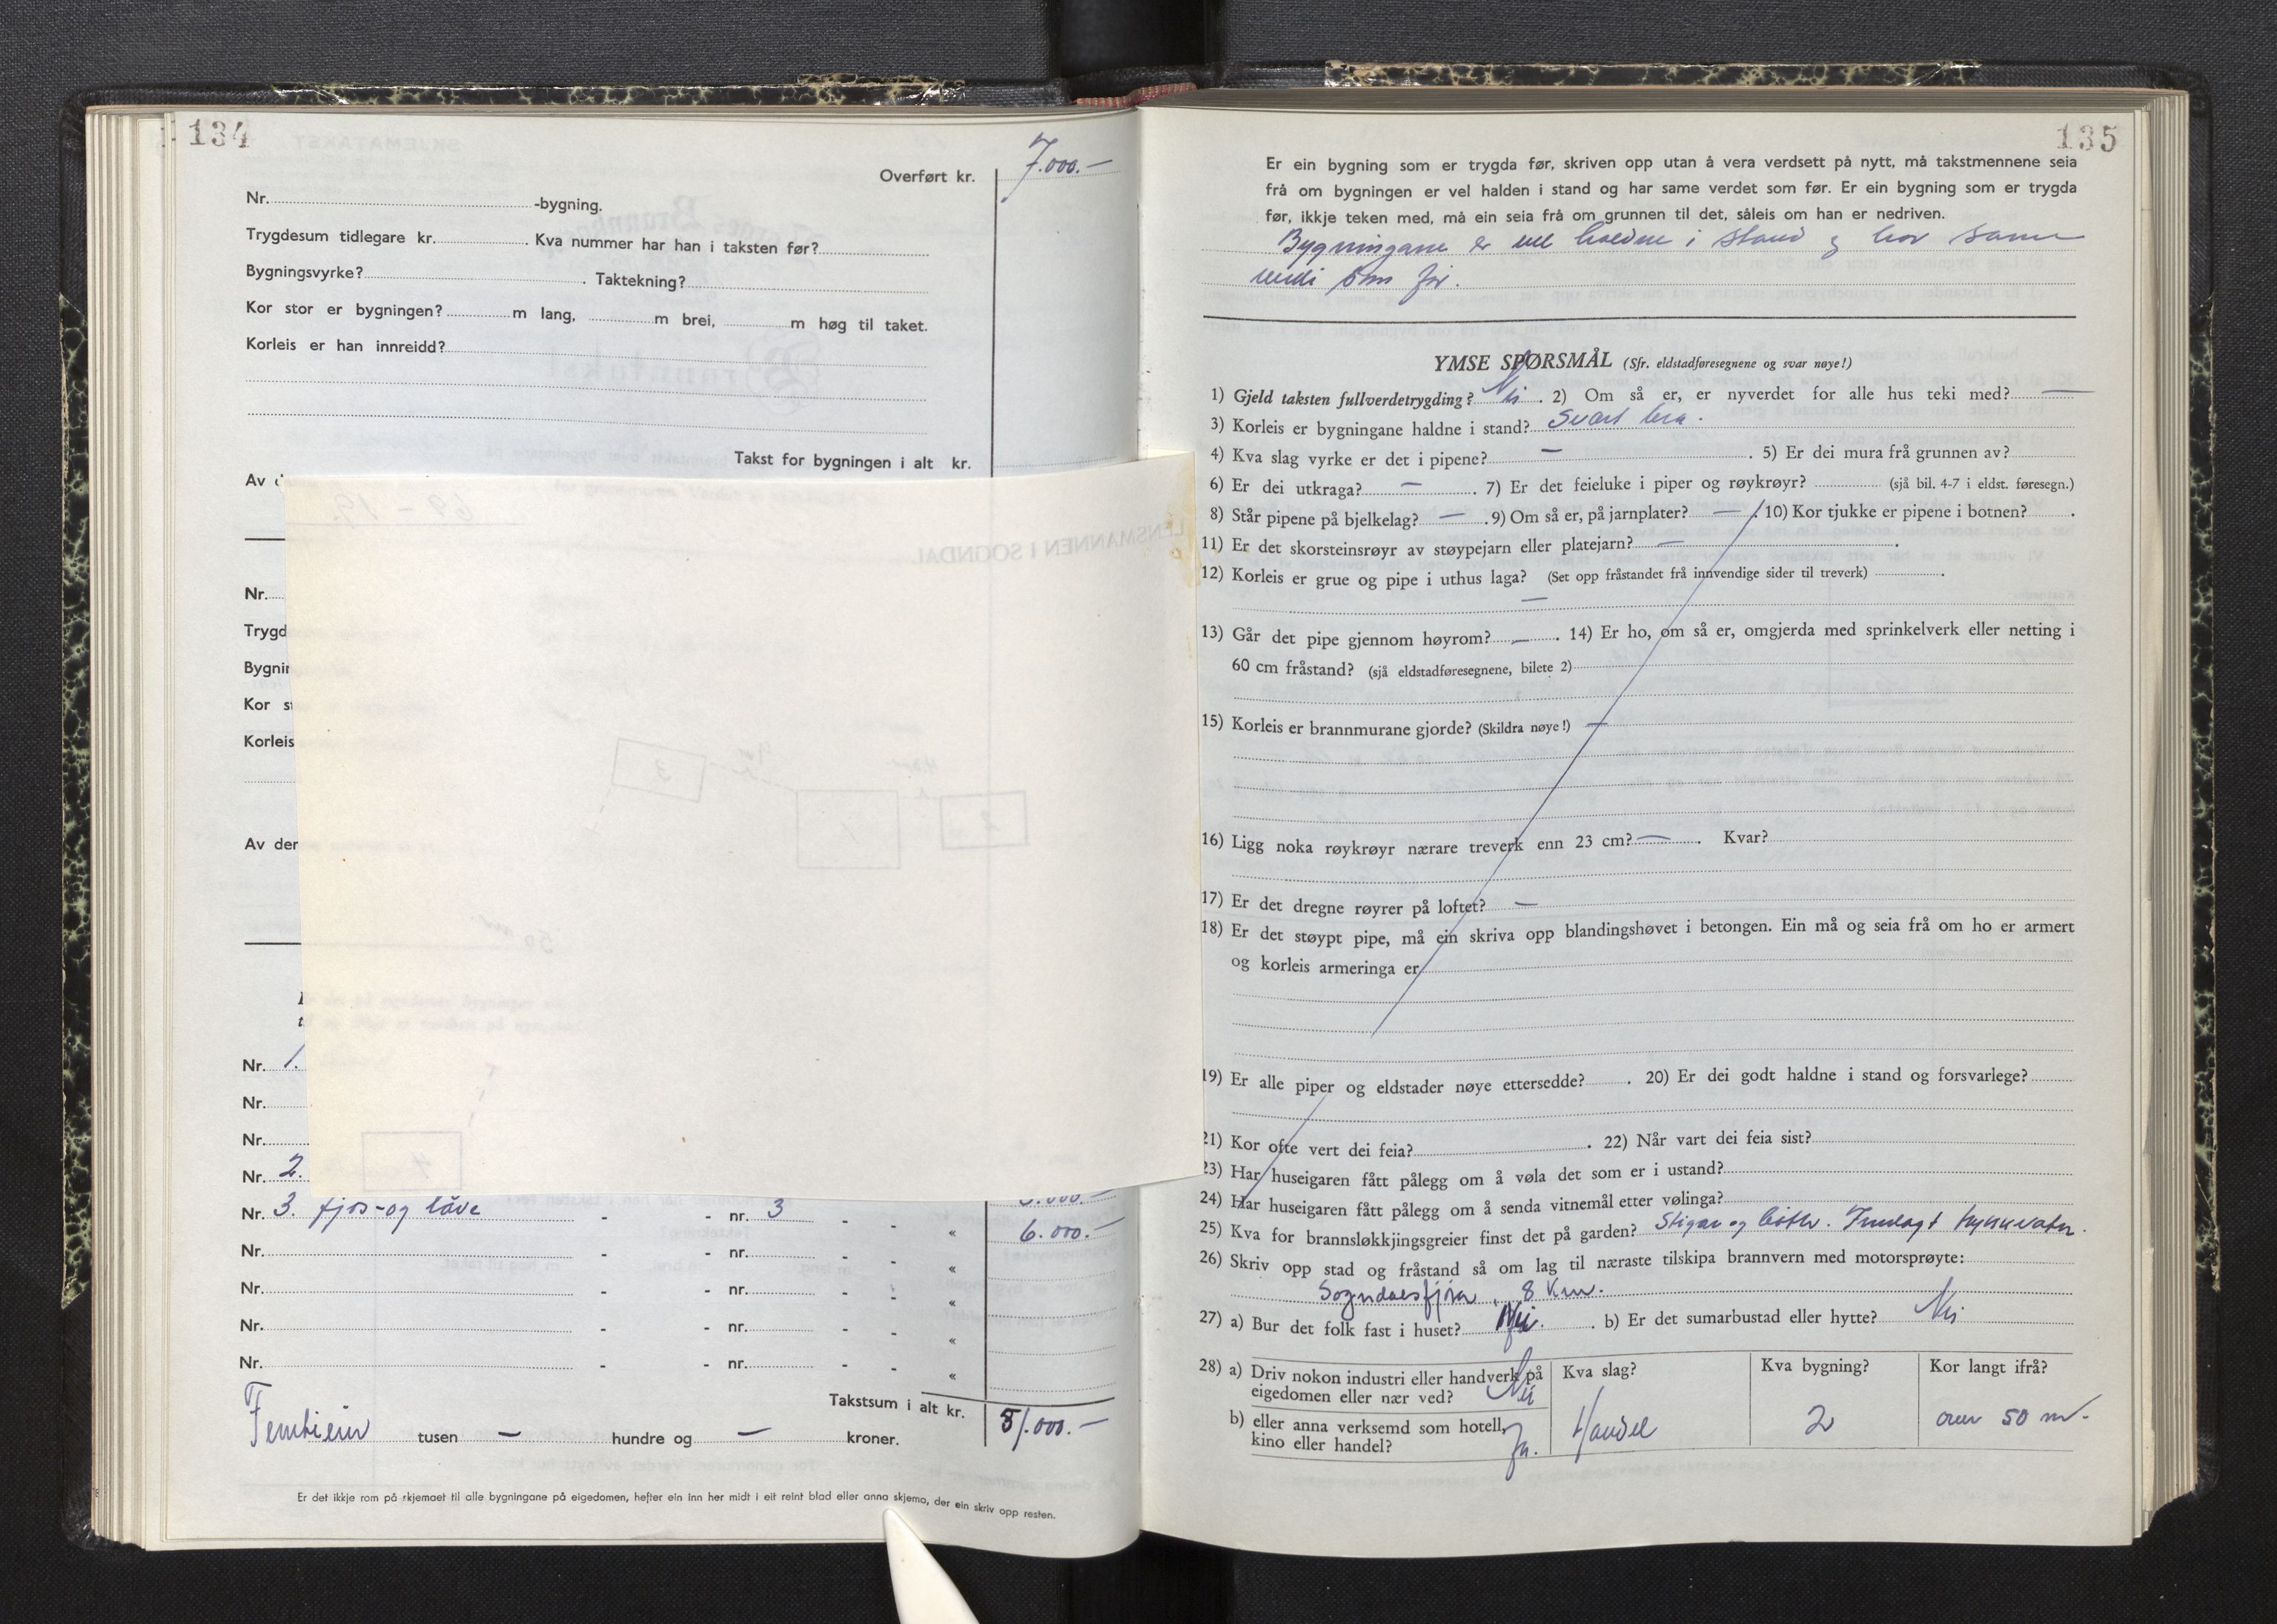 134
Overført kr. 7.000.-
Nr. -bygning.
Trygdesum tidlegare kr. . Kva nummer har han i taksten før?
Bygningsvyrke? . Taktekning?
Kor stor er bygningen? m lang, m brei, m høg til taket.
Korleis er han innreidd?
Takst for bygningen i alt kr.
Av
Nr.
Trygd
Bygnin
Kor s
Korleis
Av der
Nr. 1.
Nr.
Nr.
Nr. 2.
Nr. 3. fjos-og låve - - nr. 3 - - « 6.000.-
Nr. - - nr. - - «
Nr. - - nr. - - «
Nr. - - nr. - - «
Nr. - - nr. - - «
Takstsum i alt kr. 51.000.-
tusen — hundre og — kroner.
Er det ikkje rom på skjemaet til alle bygningane på eigedomen, hefter ein inn her midt i eit reint blad eller anna skjema, der ein skriv opp resten.
LENSMANNEN I SOGNDAL
69 - 19
3
1
2
50 m
4
135
Er ein bygning som er trygda før, skriven opp utan å vera verdsett på nytt, må takstmennene seia
frå om bygningen er vel halden i stand og har same verdet som før. Er ein bygning som er trygda
før, ikkje teken med, må ein seia frå om grunnen til det, såleis om han er nedriven.
Bygningane er vel haldne i stand og har same
verdi som før.
YMSE SPØRSMÅL (Sfr. eldstadføresegnene og svar nøye!)
1) Gjeld taksten fullverdetrygding? Nei . 2) Om så er, er nyverdet for alle hus teki med? —
3) Korleis er bygningane haldne i stand? Svært bra.
4) Kva slag vyrke er det i pipene? — . 5) Er dei mura frå grunnen av?
6) Er dei utkraga? — . 7) Er det feieluke i piper og røykrøyr? (sjå bil. 4-7 i eldst. føresegn.)
8) Står pipene på bjelkelag? — . 9) Om så er, på jarnplater? — . 10) Kor tjukke er pipene i botnen? .
11) Er det skorsteinsrøyr av støypejarn eller platejarn? — .
12) Korleis er grue og pipe i uthus laga? (Set opp fråstandet frå innvendige sider til treverk) .
—
13) Går det pipe gjennom høyrom? — . 14) Er ho, om så er, omgjerda med sprinkelverk eller netting i
60 cm fråstand? (sjå eldstadføresegnene, bilete 2)
15) Korleis er brannmurane gjorde? (Skildra nøye!) —
16) Ligg noka røykrøyr nærare treverk enn 23 cm? — . Kvar?
17) Er det dregne røyrer på loftet? —
18) Er det støypt pipe, må ein skriva opp blandingshøvet i betongen. Ein må og seia frå om ho er armert
og korleis armeringa er
19) Er alle piper og eldstader nøye ettersedde? . 20) Er dei godt haldne i stand og forsvarlege?
21) Kor ofte vert dei feia? . 22) Når vart dei feia sist?
23) Har huseigaren fått pålegg om å vøla det som er i ustand?
24) Har huseigaren fått pålegg om å senda vitnemål etter vølinga?
25) Kva for brannsløkkjingsgreier finst det på garden? Stigar og bøtter. Innlagt trykkvatn.
26) Skriv opp stad og fråstand så om lag til næraste tilskipa brannvern med motorsprøyte:
Sogndalsfjøra, 8 Km.
27) a) Bur det folk fast i huset? Nei. . b) Er det sumarbustad eller hytte? Nei
28) a) Driv nokon industri eller handverk på eigedomen eller nær ved? Nei Kva slag? Kva bygning? Kor langt ifrå?
b) eller anna verksemd som hotell, kino eller handel? Ja. Handel 2 over 50 m.